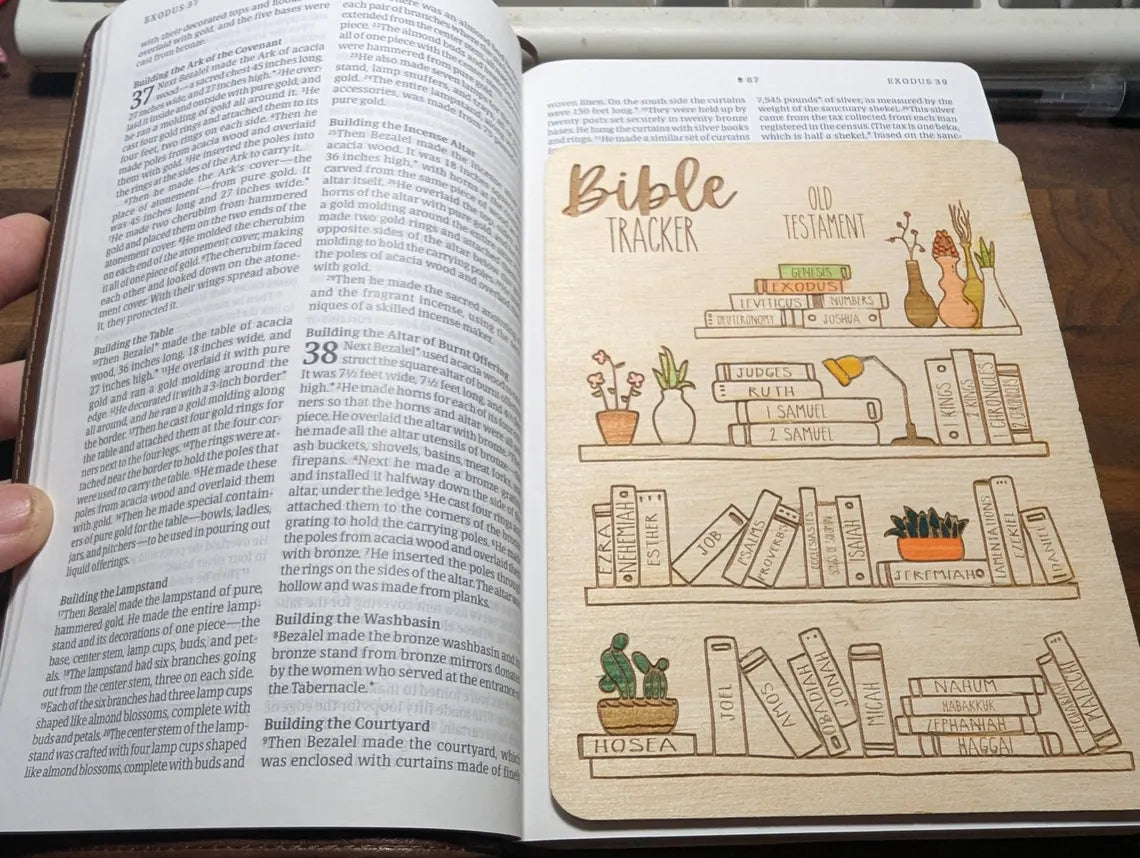 EXODUS 37
with their decorated tops and hooks
overlaid with gold, and the five bases were
cast from bronze.
Building the Ark of the Covenant
37 Next Bezalel made the Ark of acacia
wood—a sacred chest 45 inches long,
27 inches wide, and 27 inches high.* ²He over-
laid it inside and outside with pure gold, and
he ran a molding of gold all around it. ³He
cast four gold rings and attached them to its
four feet, two rings on each side. ⁴Then he
made poles from acacia wood and overlaid
them with gold. ⁵He inserted the poles into
the rings at the sides of the Ark to carry it.
⁶Then he made the Ark's cover—the
place of atonement—from pure gold. It
was 45 inches long and 27 inches wide.*
⁷He made two cherubim from hammered
gold and placed them on the two ends of the
atonement cover. ⁸He molded the cherubim
on each end of the atonement cover, making
it all of one piece of gold. ⁹The cherubim faced
each other and looked down on the atone-
ment cover. With their wings spread above
it, they protected it.
Building the Table
¹⁰Then Bezalel* made the table of acacia
wood, 36 inches long, 18 inches wide, and
27 inches high.* ¹¹He overlaid it with pure
gold and ran a gold molding around the
edge. ¹²He decorated it with a 3-inch border*
all around, and he ran a gold molding along
the border. ¹³Then he cast four gold rings for
the table and attached them at the four cor-
ners next to the four legs. ¹⁴The rings were at-
tached near the border to hold the poles that
were used to carry the table. ¹⁵He made these
poles from acacia wood and overlaid them
with gold. ¹⁶Then he made special contain-
ers of pure gold for the table—bowls, ladles,
jars, and pitchers—to be used in pouring out
liquid offerings.
Building the Lampstand
¹⁷Then Bezalel made the lampstand of pure,
hammered gold. He made the entire lamp-
stand and its decorations of one piece—the
base, center stem, lamp cups, buds, and pet-
als. ¹⁸The lampstand had six branches going
out from the center stem, three on each side.
¹⁹Each of the six branches had three lamp cups
shaped like almond blossoms, complete with
buds and petals. ²⁰The center stem of the lamp-
stand was crafted with four lamp cups shaped
like almond blossoms, complete with buds and
There was an almond
each pair of branches where the
extended from the center stem
piece. ²²The almond buds and
all of one piece with the center
were hammered from pure gold
²³He also made seven
stand, lamp snuffers, and trays
gold. ²⁴The entire lampstand
accessories, was made from 75
pure gold.
Building the Incense Altar
²⁵Then Bezalel made the incense
acacia wood. It was 18 inches
36 inches high,* with horns at the
carved from the same piece of
altar itself. ²⁶He overlaid the top,
horns of the altar with pure gold,
a gold molding around the entire
made two gold rings and attached
opposite sides of the altar below
molding to hold the carrying poles.
the poles of acacia wood and overlaid
with gold.
²⁹Then he made the sacred anointing
and the fragrant incense, using the
niques of a skilled incense maker.
Building the Altar of Burnt Offering
38 Next Bezalel* used acacia wood
struct the square altar of burnt
It was 7½ feet wide, 7½ feet long, and
high.* ²He made horns for each of its four
ners so that the horns and altar were all
piece. He overlaid the altar with bronze.
he made all the altar utensils of bronze—the
ash buckets, shovels, basins, meat forks, and
firepans. ⁴Next he made a bronze grating
and installed it halfway down the side of
altar, under the ledge. ⁵He cast four rings
attached them to the corners of the bronze
grating to hold the carrying poles. ⁶He
the poles from acacia wood and overlaid them
with bronze. ⁷He inserted the poles through
the rings on the sides of the altar. The altar was
hollow and was made from planks.
Building the Washbasin
⁸Bezalel made the bronze washbasin and
bronze stand from bronze mirrors donated
by the women who served at the entrance
the Tabernacle.*
Building the Courtyard
⁹Then Bezalel made the courtyard, which
was enclosed with curtains made of finely
87
EXODUS 39
woven linen. On the south side the curtains
were 150 feet long.* ¹⁰They were held up by
twenty posts set securely in twenty bronze
bases. He hung the curtains with silver hooks
and rings. ¹¹He made a similar set of curtains
7,545 pounds* of silver, as measured by the
weight of the sanctuary shekel. ²⁶This silver
came from the tax collected from each man
registered in the census. (The tax is one beka,
which is half a shekel,* based on the sanc-
Bible
TRACKER
OLD
TESTAMENT
GENESIS
EXODUS
LEVITICUS
NUMBERS
DEUTERONOMY
JOSHUA
JUDGES
RUTH
1 SAMUEL
2 SAMUEL
1 KINGS
2 KINGS
1 CHRONICLES
2 CHRONICLES
EZRA
NEHEMIAH
ESTHER
JOB
PSALMS
PROVERBS
ECCLESIASTES
SONG OF SOLOMON
ISAIAH
JEREMIAH
LAMENTATIONS
EZEKIEL
DANIEL
HOSEA
JOEL
AMOS
OBADIAH
JONAH
MICAH
NAHUM
HABAKKUK
ZEPHANIAH
HAGGAI
ZECHARIAH
MALACHI